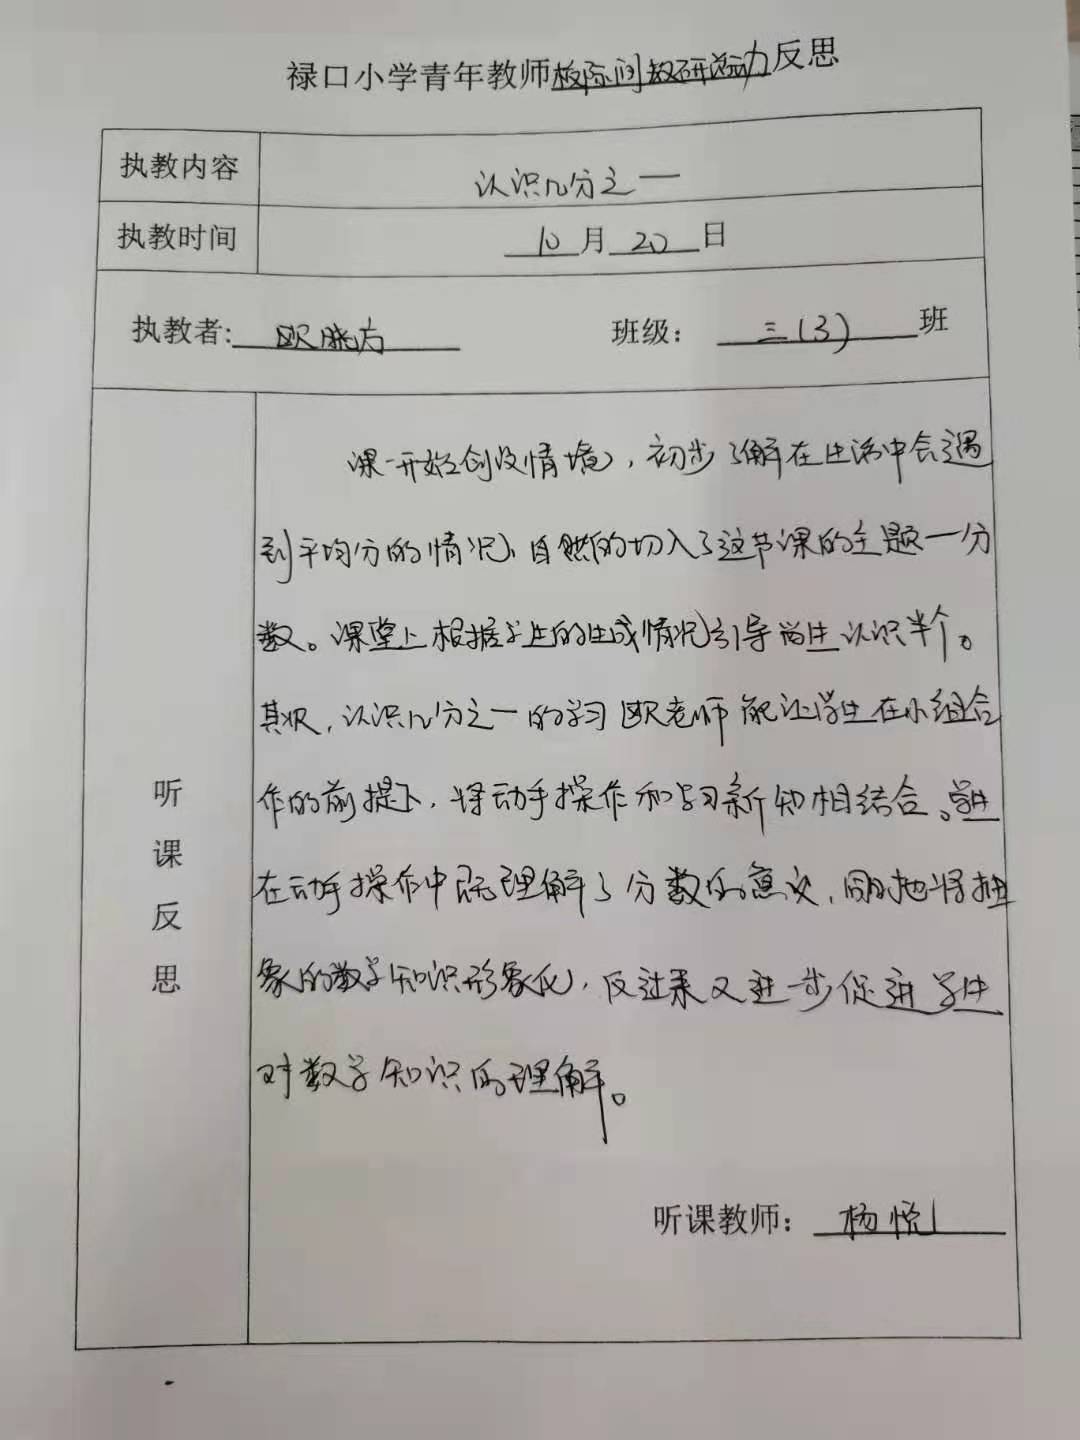 禄口小学青年教师校际间教研活动反思
执教内容 认识几分之一
执教时间 10月20日
执教者: 欧晓方 班级: 三(3)班
听课反思
课一开始创设情境,初步了解在生活中会遇
到平均分的情况,自然的切入了这节课的主题一分
数。课堂上根据学生的生成情况引导学生认识半个。
其次,认识几分之一的学习欧老师能让学生在小组合
作的前提下,将动手操作和学习新知相结合。学生
在动手操作中既理解了分数的意义,同时也将抽
象的数学知识形象化,反过来又进一步促进学生
对数学知识的理解。
听课教师: 杨悦